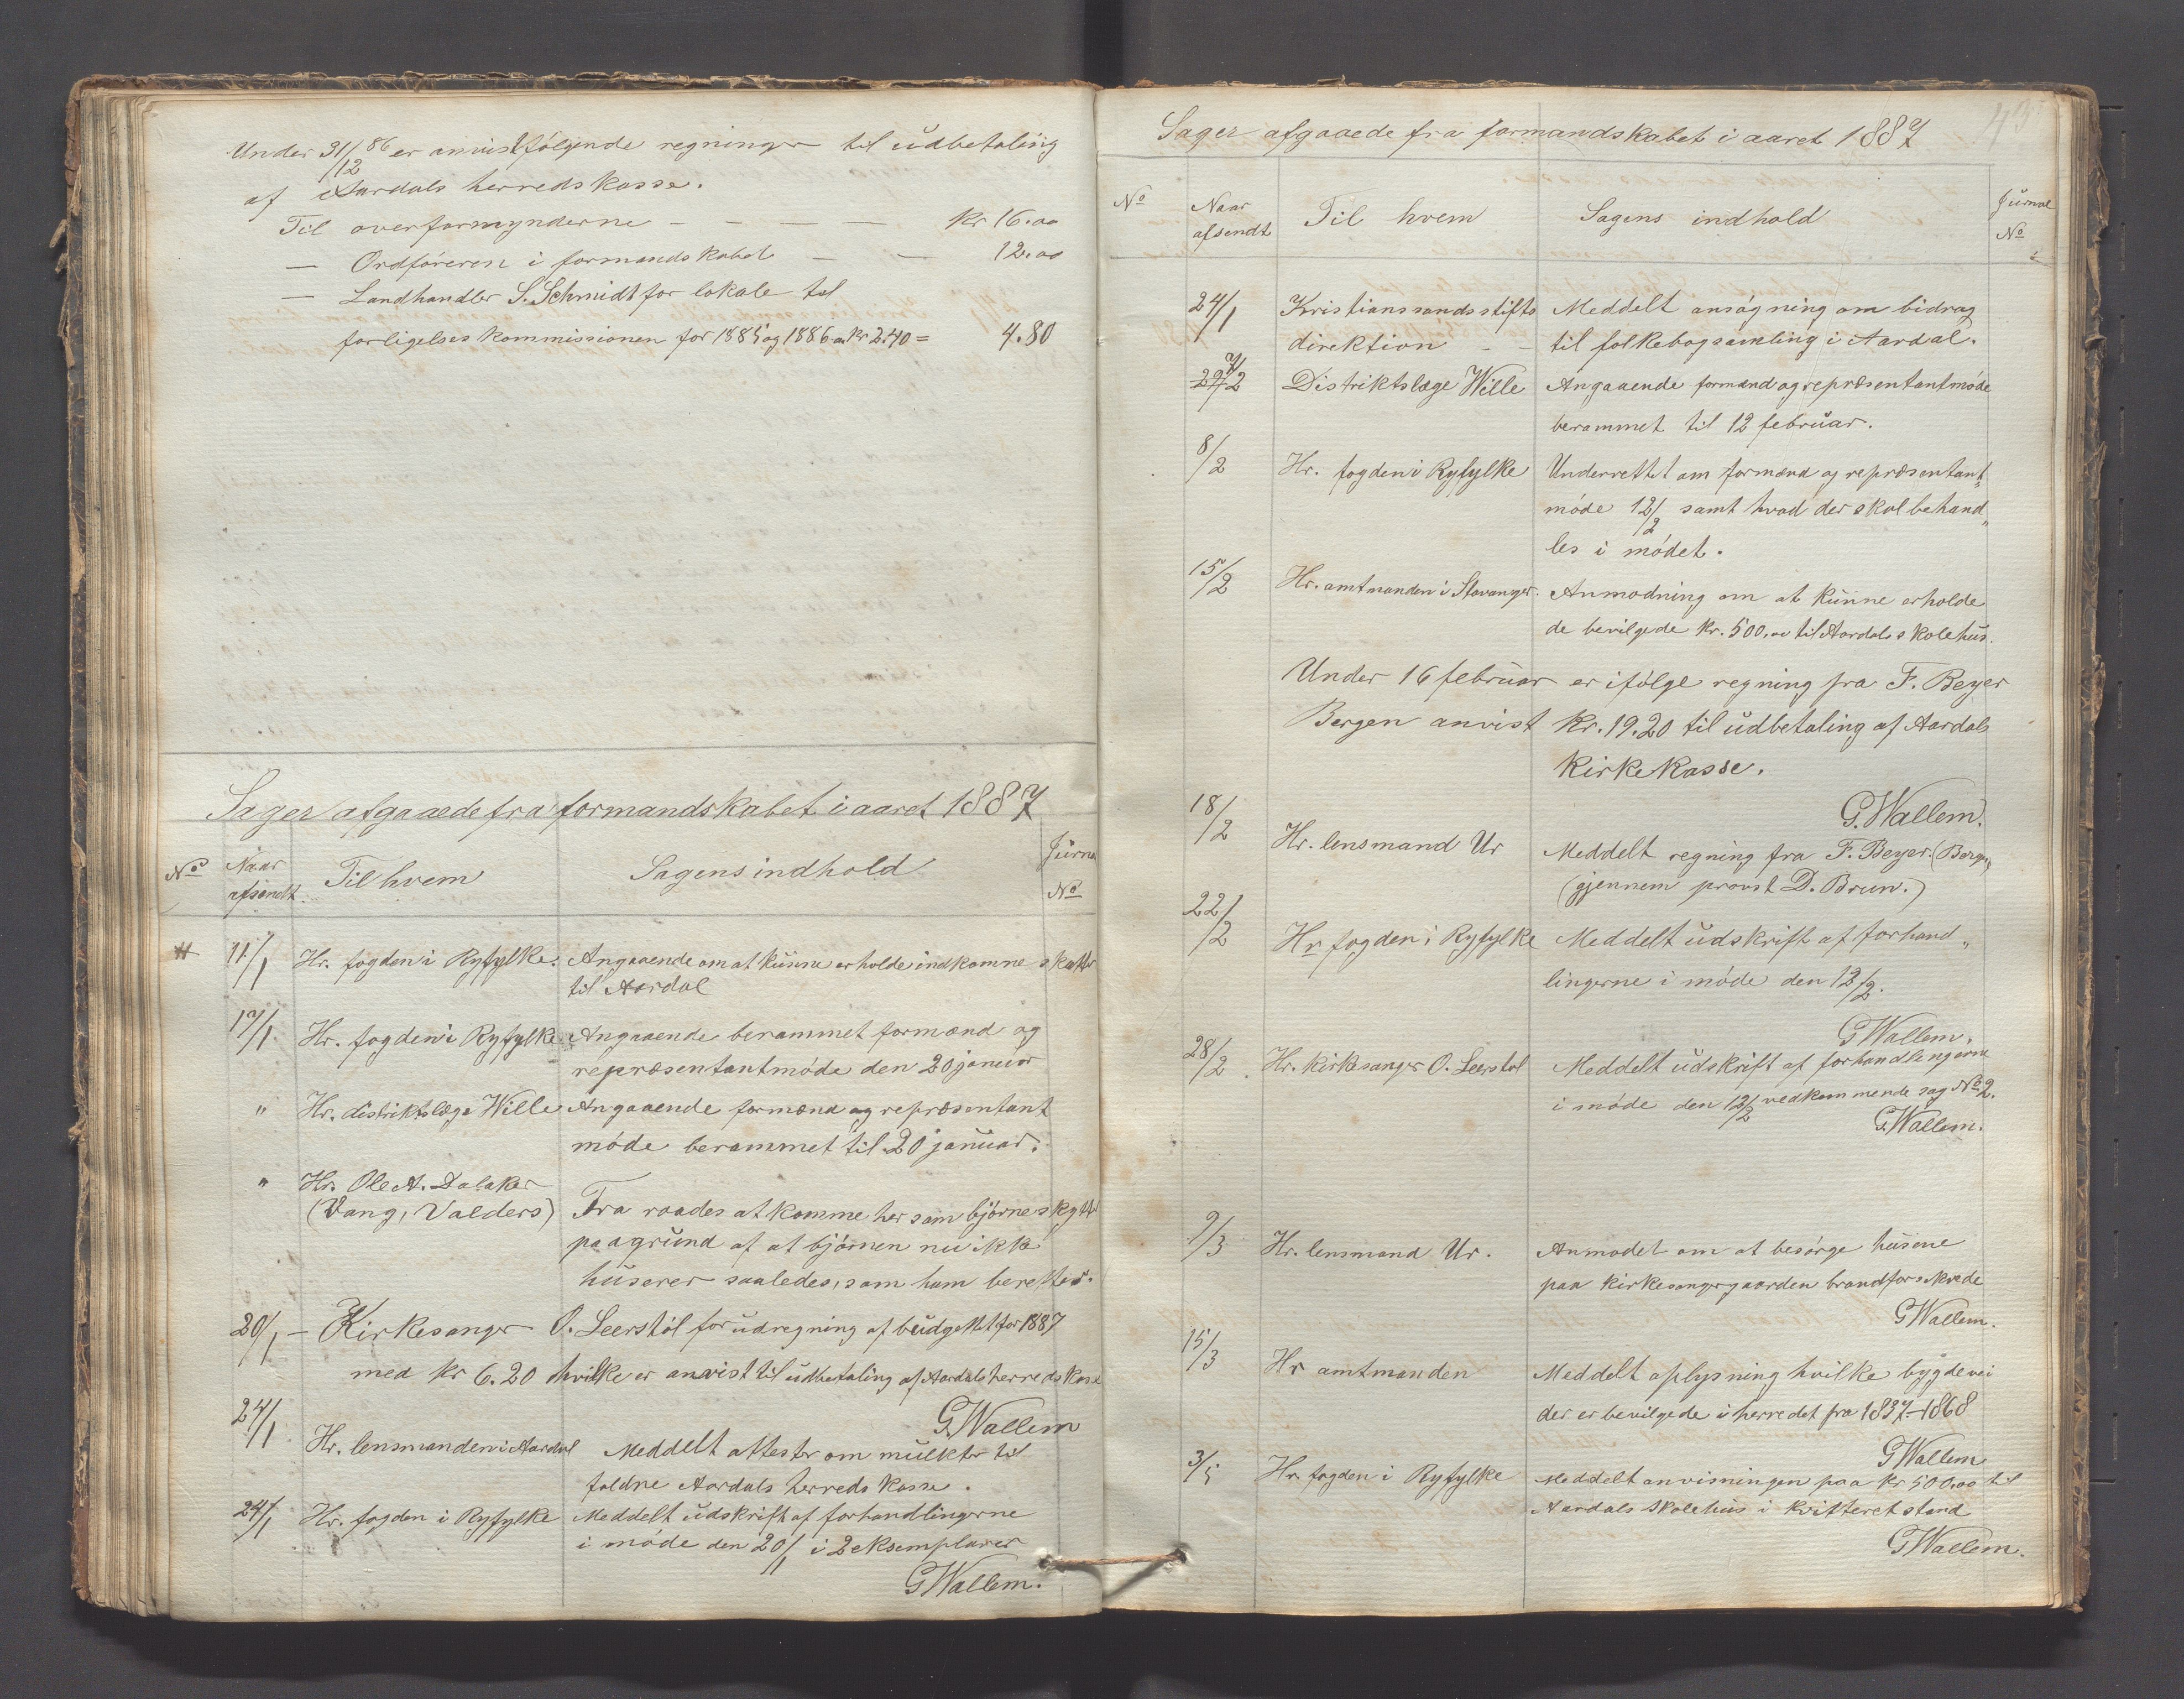 Under 31/12 86 er anvist følgende regninger til udbetaling
af Aardals herredskasse.
Til overformynderne - - - - kr 16.00
— Ordføreren i formandskabet - - 12.00
— Landhandler S. Schmidt for lokale til
forligelses kommissionen for 1885 og 1886 a kr 2.40 = 4.80
Sager afgaaede fra formandskabet i aaret 1887
No Naar afsendt Til hvem Sagens indhold Journ No
11/1 Hr. fogden i Ryfylke. Angaaende om at kunne erholde indkomne skatter
til Aardal
17/1 Hr. fogden i Ryfylke Angaaende berammet formænd og
repræsentantmøde den 20 januar
" Hr. distriktslæge Wille Angaaende formænd og repræsentant
møde berammet til 20 januar.
" Hr. Ole A. Dalaker
(Vang, Valders) Fra raades at komme her som bjørneskytte
paagrund af at bjørnen nu ikke
huserer saaledes, som ham berettes.
20/1 — Kirkesanger O. Leerstøl for udregning af budgettet for 1887
med kr 6.20 hvilke er anvist til udbetaling af Aardals herredskasse
G. Wallem
24/1 Hr. lensmanden i Aardal Meddelt attester om mulkter til
faldne Aardals herreds kasse.
24/1 Hr. fogden i Ryfylke Meddelt udskrift af forhandlingerne
i møde den 20/1 i 2 eksemplarer
G Wallem.
Sager afgaaede fra formandskabet i aaret 1887
No Naar afsendt Til hvem Sagens indhold Jurnal No
24/1 Kristianssands stifts Meddelt ansøgning om bidrag
direktion - - til folkebogsamling i Aardal.
7/2 Distriktslæge Wille Angaaende formænd og repræsentantmøde
berammet til 12 februar.
8/2 Hr. fogden i Ryfylke Underrettet om formænd og repræsentant„
møde 12/2 samt hvad der skal behand„
les i mødet.
15/2 Hr. amtmanden i Stavanger. Anmodning om at kunne erholde
de bevilgede kr. 500.00 til Aardals skolehus.
Under 16 februar er ifølge regning fra F. Beyer
Bergen anvist kr. 19.20 til udbetaling af Aardals
kirkekasse.
G. Wallem.
18/2 Hr. lensmand Ur Meddelt regning fra F. Beyer. (Bergen„
(gjennem provst D. Brun.)
22/2 Hr fogden i Ryfylke Meddelt udskrift af forhand„
lingerne i møde den 12/2.
G Wallem.
28/2 Hr. kirkesanger O. Leerstøl Meddelt udskrift af forhandlingerne
i møde den 12/2 vedkommende sag No 2.
G Wallem.
9/3 Hr. lensmand Ur. Anmodet om at besørge husene
paa kirkesangergaarden brandforsikrede
G Wallem.
15/3 Hr amtmanden Meddelt oplysning hvilke bygdevei
der er bevilgede i herredet fra 1837-1868
G Wallem
3/5 Hr. fogden i Ryfylke Meddelt anvisningen paa kr 500.00 til
Aardals skolehus i kvitteret stand
G Wallem.